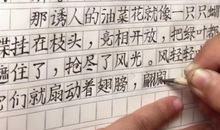 那诱人的油菜花就像一只只蝴
蝶挂在枝头，竞相开放，把绿叶都
遮住了，抢尽了风光。风轻轻
它们就扇动着翅膀，翩翩